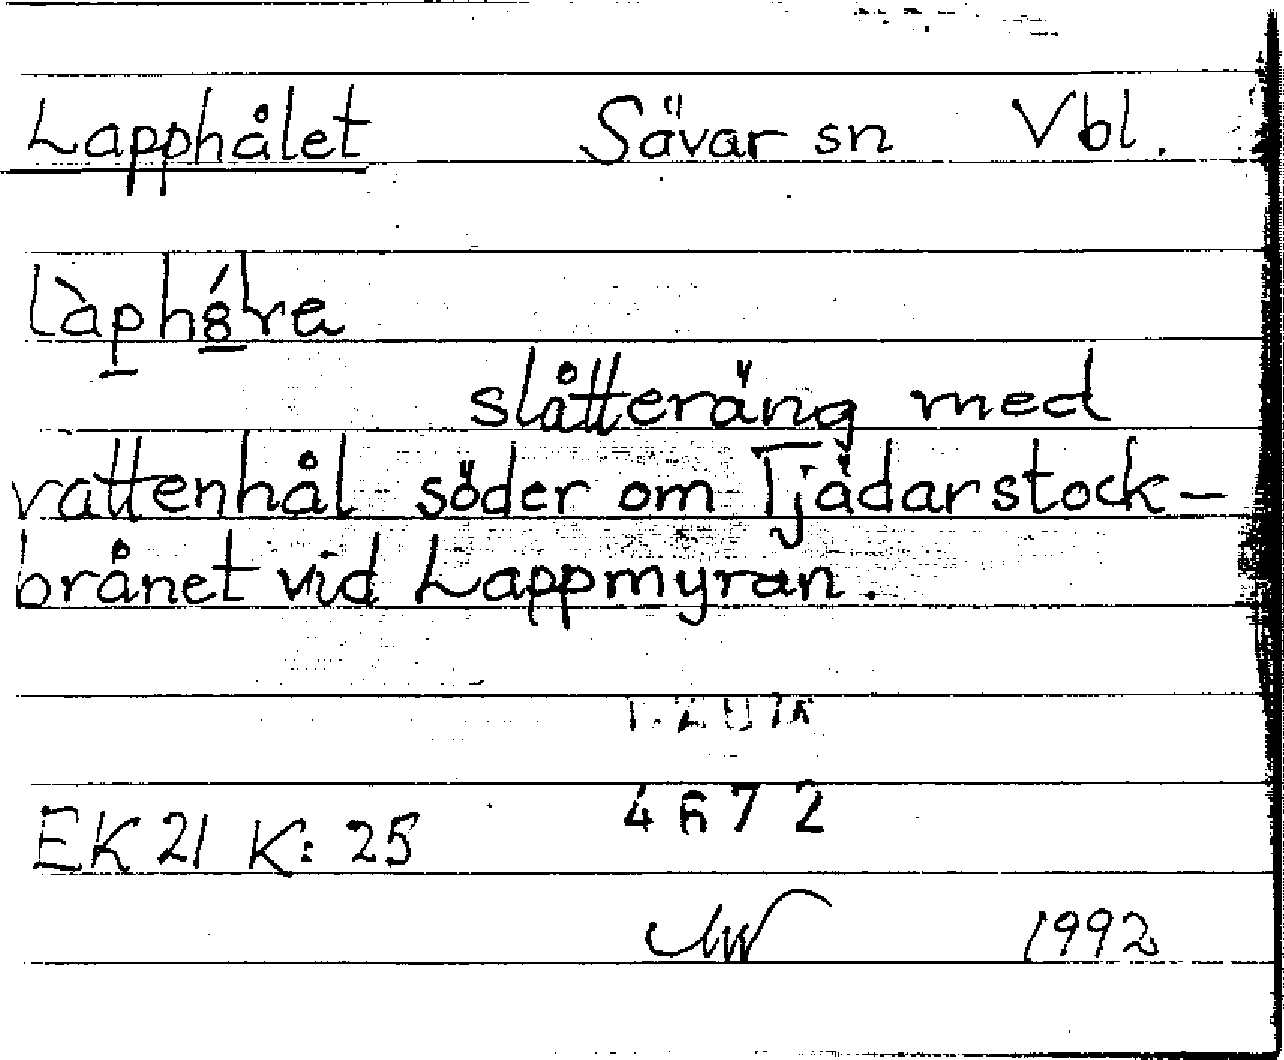 Lapphålet Sävar sn Vbl.
slåtteräng med
vattenhål söder om Tjädarstock-
brånet vid Lappmyran.
EK 21 K: 25
4672
1992